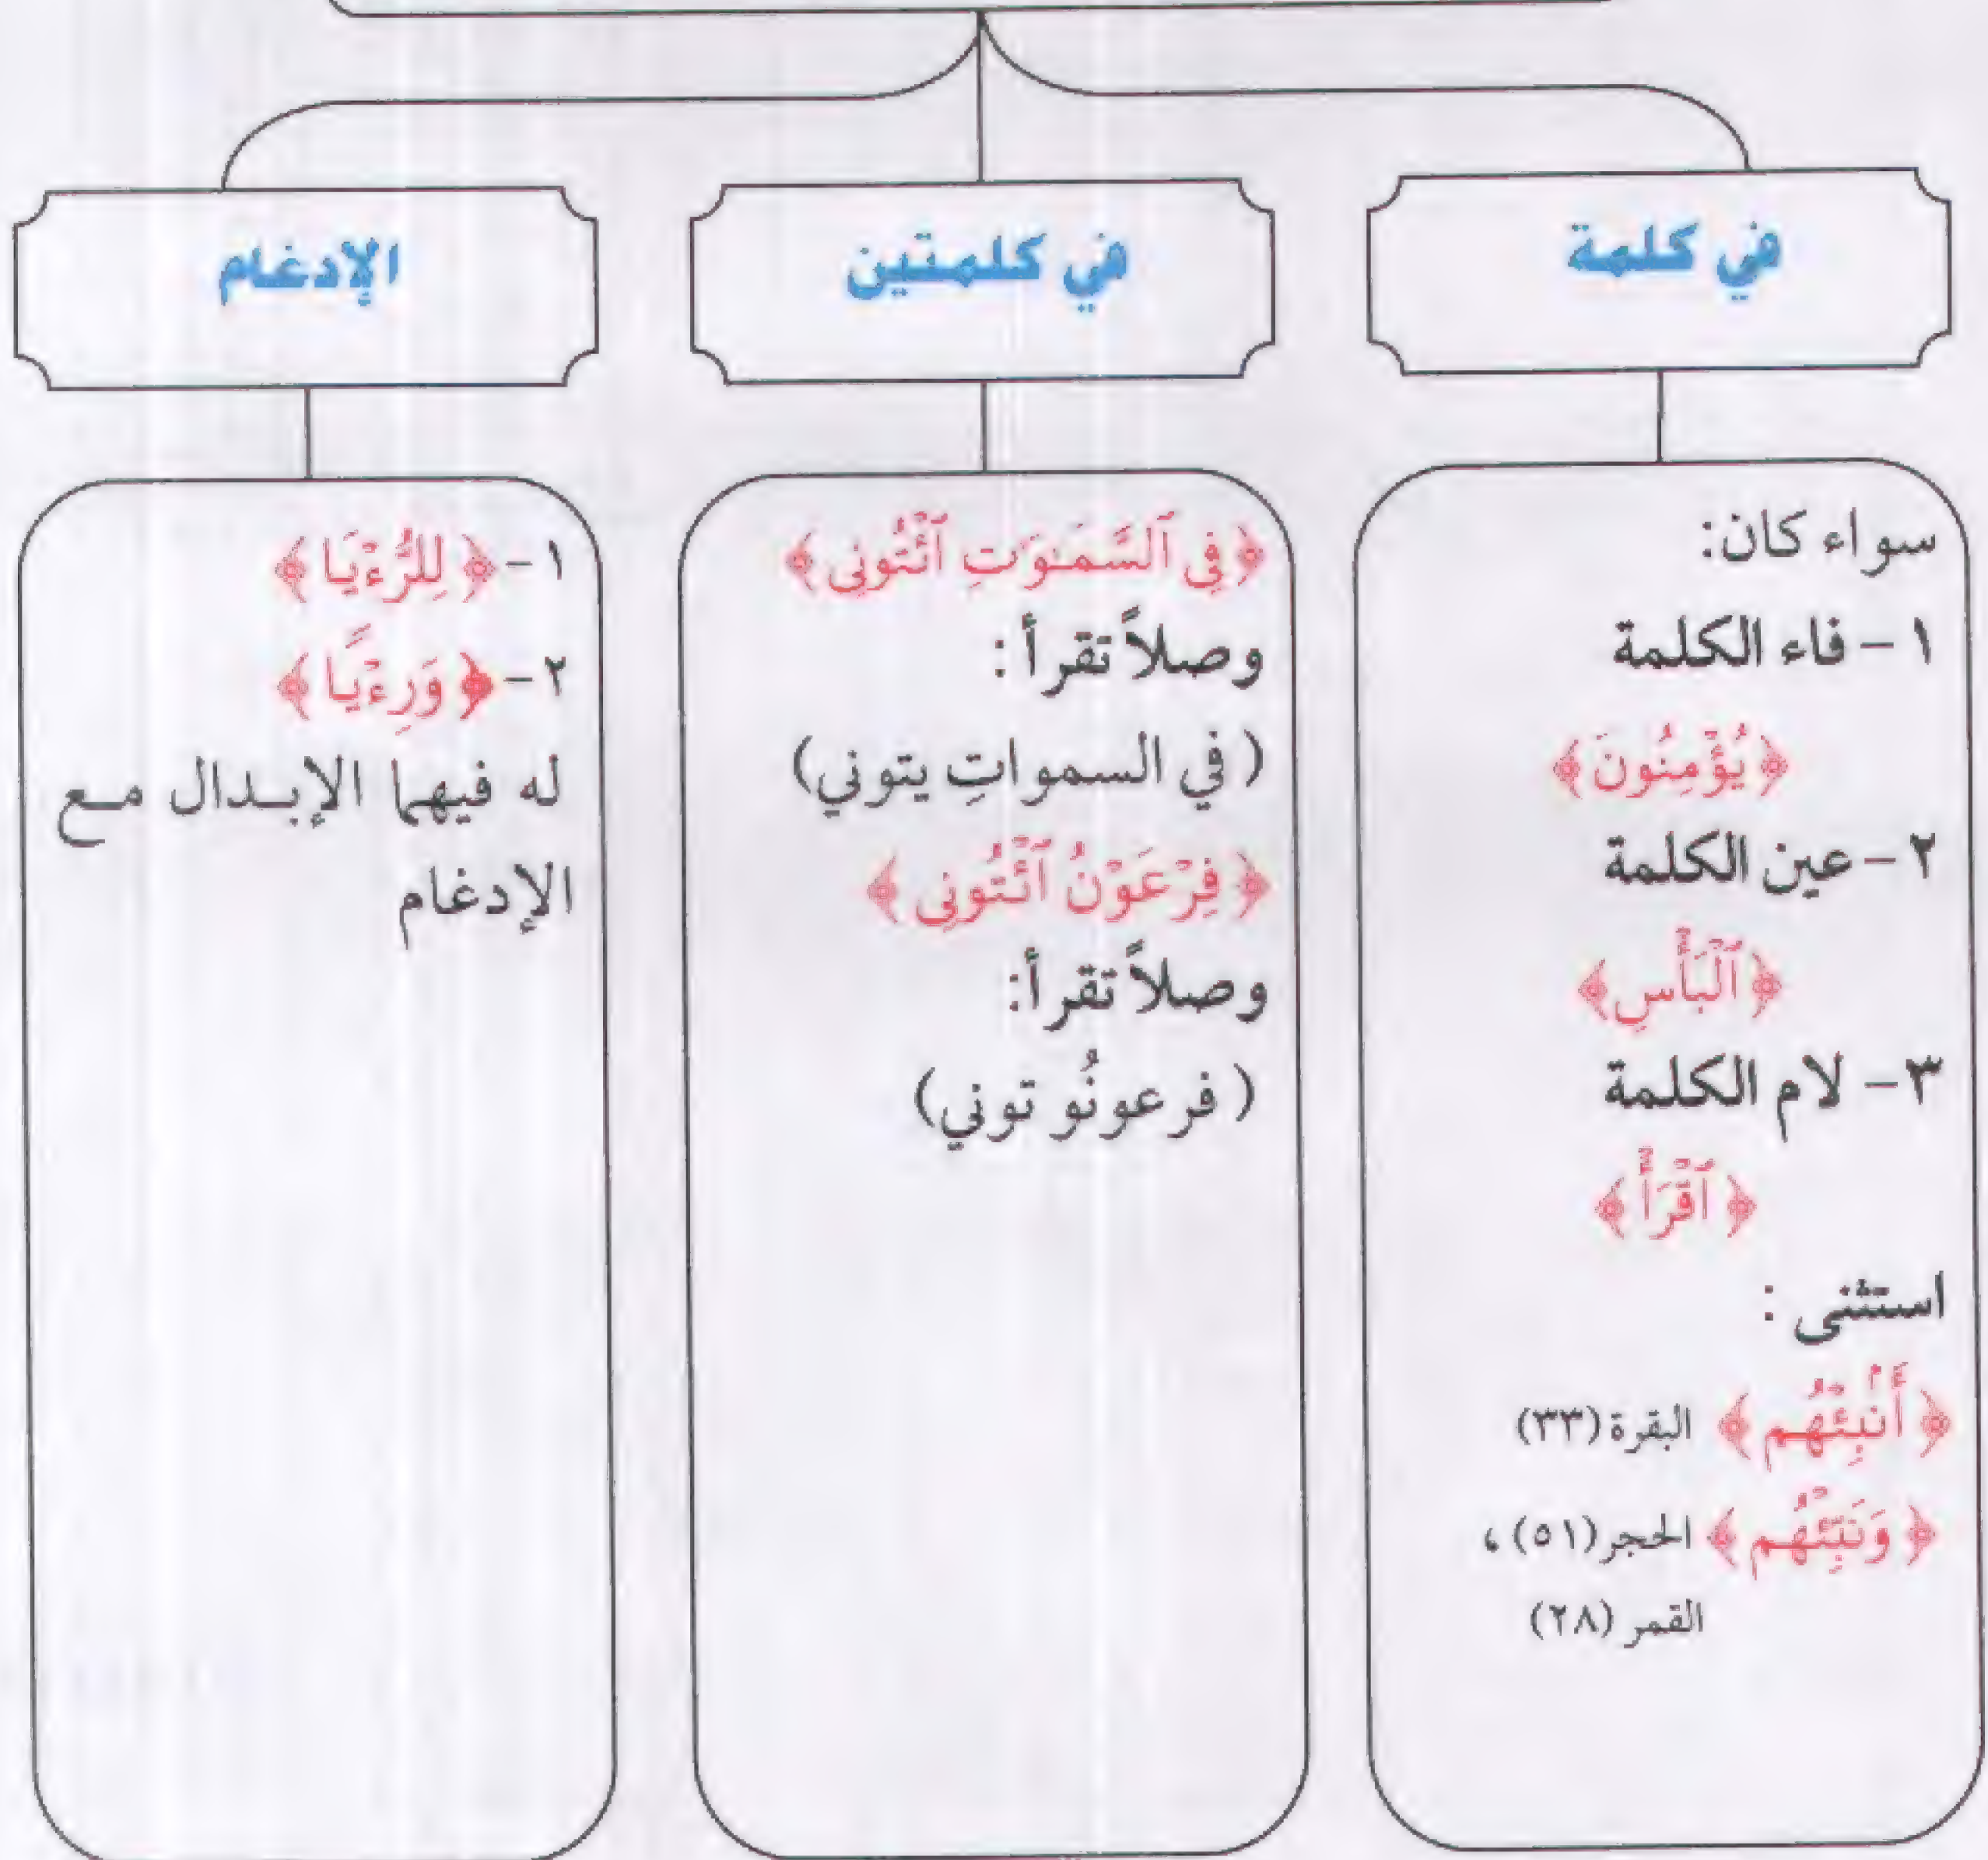 في كلمة
سواء كان:
١ - فاء الكلمة
﴿ يُؤْمِنُونَ ﴾
٢ - عين الكلمة
﴿ ٱلْبَأْسِ ﴾
٣ - لام الكلمة
﴿ ٱقْرَأْ ﴾
استثنى :
﴿ أَنۢبِئْهُم ﴾ البقرة (٣٣)
﴿ وَنَبِّئْهُم ﴾ الحجر (٥١) ،
القمر (٢٨)
في كلمتين
﴿ فِى ٱلسَّمَـٰوَٰتِ ٱئْتُونِى ﴾
وصلاً تقرأ :
( في السمواتِ يتوني)
﴿ فِرْعَوْنُ ٱئْتُونِى ﴾
وصلاً تقرأ:
( فرعونُو توني)
الإدغام
١ - ﴿ لِلرُّءْيَا ﴾
٢ - ﴿ وَرِءْيًا ﴾
له فيهما الإبـدال مـع
الإدغام